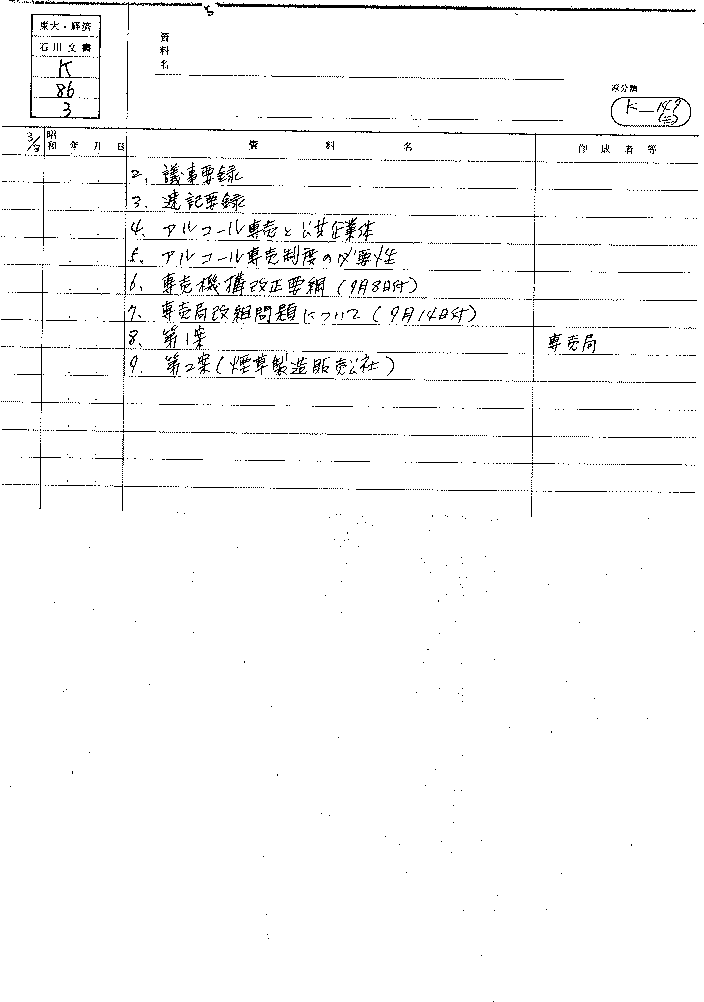 東大・経済
石川文書
K
86
3
資料名
原分類
K-147
(三)
3/3 昭和 年 月 日 資料名 作成者等
2. 議事要録
3. 速記要録
4. アルコール専売と公共企業体
5. アルコール専売制度の必要性
6. 専売機構改正要綱(9月8日付)
7. 専売局改組問題について(9月14日付)
8. 第1案 専売局
9. 第2案(煙草製造販売公社)